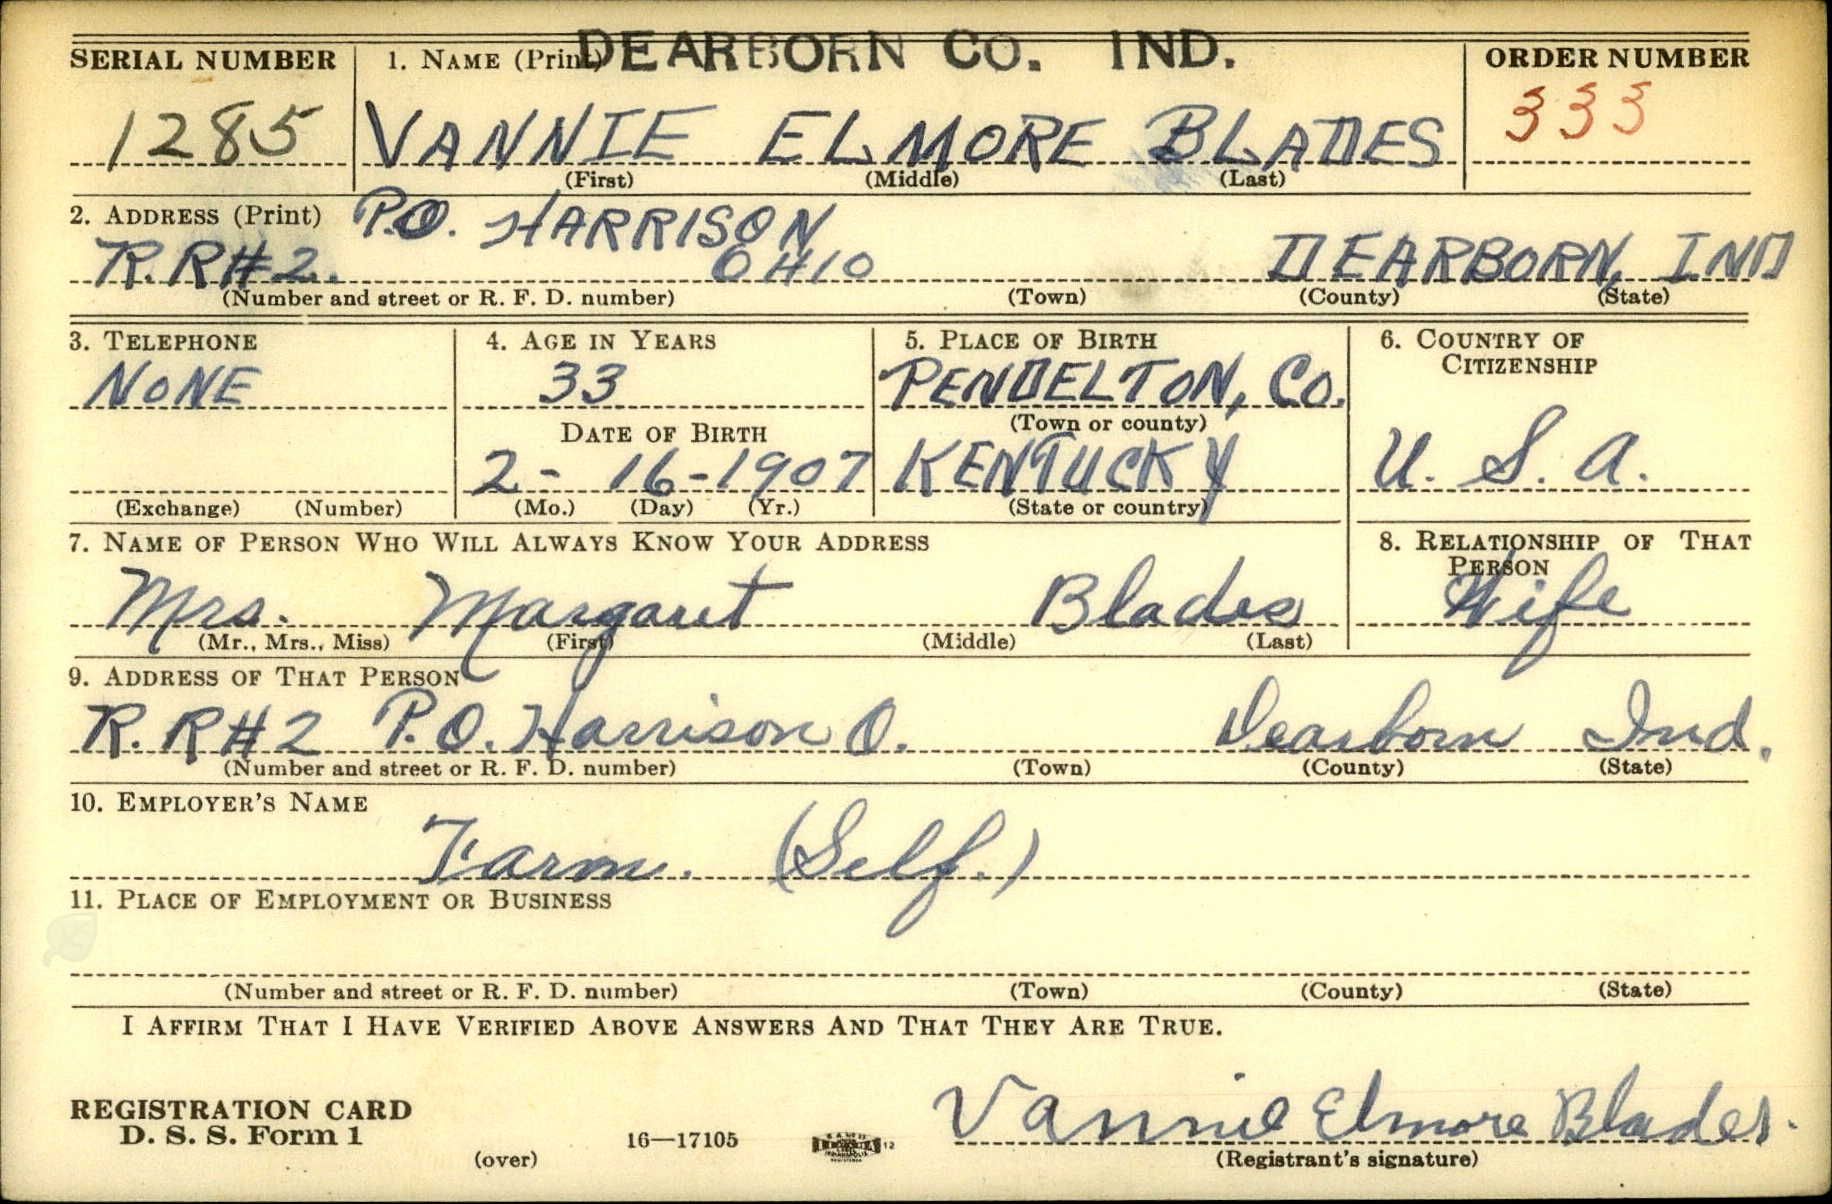 DEARBORN CO. IND.
SERIAL NUMBER 1. NAME (Print) ORDER NUMBER
1285 VANNIE ELMORE BLADES 333
(First) (Middle) (Last)
2. ADDRESS (Print) P.O. HARRISON
R.R#2. OHIO DEARBORN, IND
(Number and street or R. F. D. number) (Town) (County) (State)
3. TELEPHONE 4. AGE IN YEARS 5. PLACE OF BIRTH 6. COUNTRY OF
CITIZENSHIP
NONE 33 PENDELTON, CO.
DATE OF BIRTH (Town or county)
2-16-1907 KENTUCKY U. S. A.
(Exchange) (Number) (Mo.) (Day) (Yr.) (State or country)
7. NAME OF PERSON WHO WILL ALWAYS KNOW YOUR ADDRESS 8. RELATIONSHIP OF THAT
PERSON
Mrs. Margaret Blades Wife
(Mr., Mrs., Miss) (First) (Middle) (Last)
9. ADDRESS OF THAT PERSON
R.R#2 P.O. Harrison O. Dearborn Ind.
(Number and street or R. F. D. number) (Town) (County) (State)
10. EMPLOYER'S NAME
Farm. (Self.)
11. PLACE OF EMPLOYMENT OR BUSINESS
(Number and street or R. F. D. number) (Town) (County) (State)
I AFFIRM THAT I HAVE VERIFIED ABOVE ANSWERS AND THAT THEY ARE TRUE.
REGISTRATION CARD
D. S. S. Form 1 16—17105 12 Vannie Elmore Blades.
(over) (Registrant's signature)